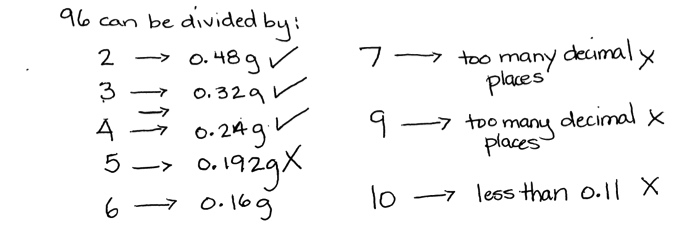 96 can be divided by:
2 → 0.48g ✓
3 → 0.32g ✓
→
4 → 0.24g ✓
5 → 0.192g X
6 → 0.16g
7 → too many decimal X
places
9 → too many decimal X
places
10 → less than 0.11 X